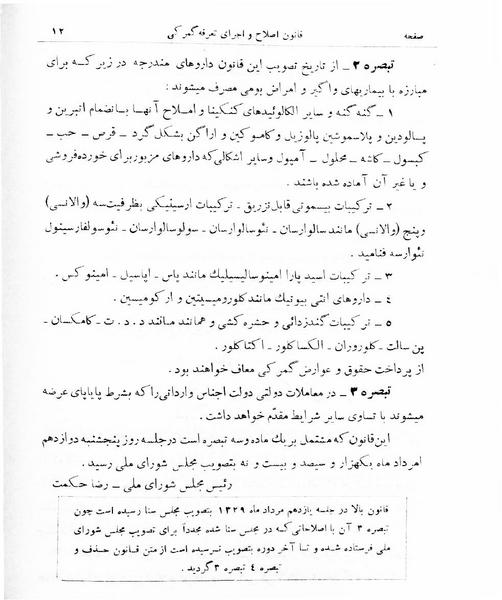 صفحه قانون اصلاح و اجرای تعرفه گمرکی ۱۲
تبصره ۲ ــ از تاریخ تصویب این قانون داروهای مندرجه در زیر که برای
مبارزه با بیماریهای واگیر و امراض بومی مصرف میشوند :
۱ ــ گنه گنه و سایر الکالوئیدهای کنکینا و املاح آنها بانضمام اتبرین و
پالودین و پلاسموشین پالوزیل و کاموکین و اراگن بشکل گرد ــ قرص ــ حب ــ
کپسول ــ کاشه ــ محلول ــ آمپول و سایر اشکالی که داروهای مزبور برای خورده فروشی
و یا غیر آن آماده شده باشند .
۲ ــ ترکیبات بیسموتی قابل تزریق ـ ترکیبات ارسینیکی بظرفیت سه (والانسی)
و پنج (والانسی) مانند سالوارسان ـ نئوسالوارسان ـ سولوسالوارسان ـ نئوسولفارسینول
نئوارسه فنامید .
۳ ــ ترکیبات اسید پارا امینوسالیسیلیک مانند پاس ـ اپاسیل ـ امینوکس .
٤ ــ داروهای انتی بیوتیک مانند کلورومیسیتین و ارکومیسین .
٥ ــ ترکیبات گندزدائی و حشره کشی و همانند مانند د . د . ت ــ کامکسان ـ
پن سالت ـ کلوروران ـ الکساکلور ـ اکتاکلور .
از پرداخت حقوق و عوارض گمرکی معاف خواهند بود .
تبصره ۳ ــ در معاملات دولتی دولت اجناس وارداتی را که بشرط پایاپای عرضه
میشوند با تساوی سایر شرایط مقدّم خواهد داشت .
این قانون که مشتمل بر یک ماده و سه تبصره است در جلسه روز پنجشنبه دوازدهم
امرداد ماه یکهزار و سیصد و بیست و نه بتصویب مجلس شورای ملی رسید .
رئیس مجلس شورای ملی ــ رضا حکمت
قانون بالا در جلسه یازدهم مرداد ماه ۱۳۲۹ بتصویب مجلس سنا رسیده است چون
تبصره ۳ آن با اصلاحاتی که در مجلس سنا شده مجدداً برای تصویب مجلس شورای
ملی فرستاده شده و تا آخر دوره بتصویب نرسیده است از متن قانون حذف و
تبصره ٤ تبصره ۳ گردید .